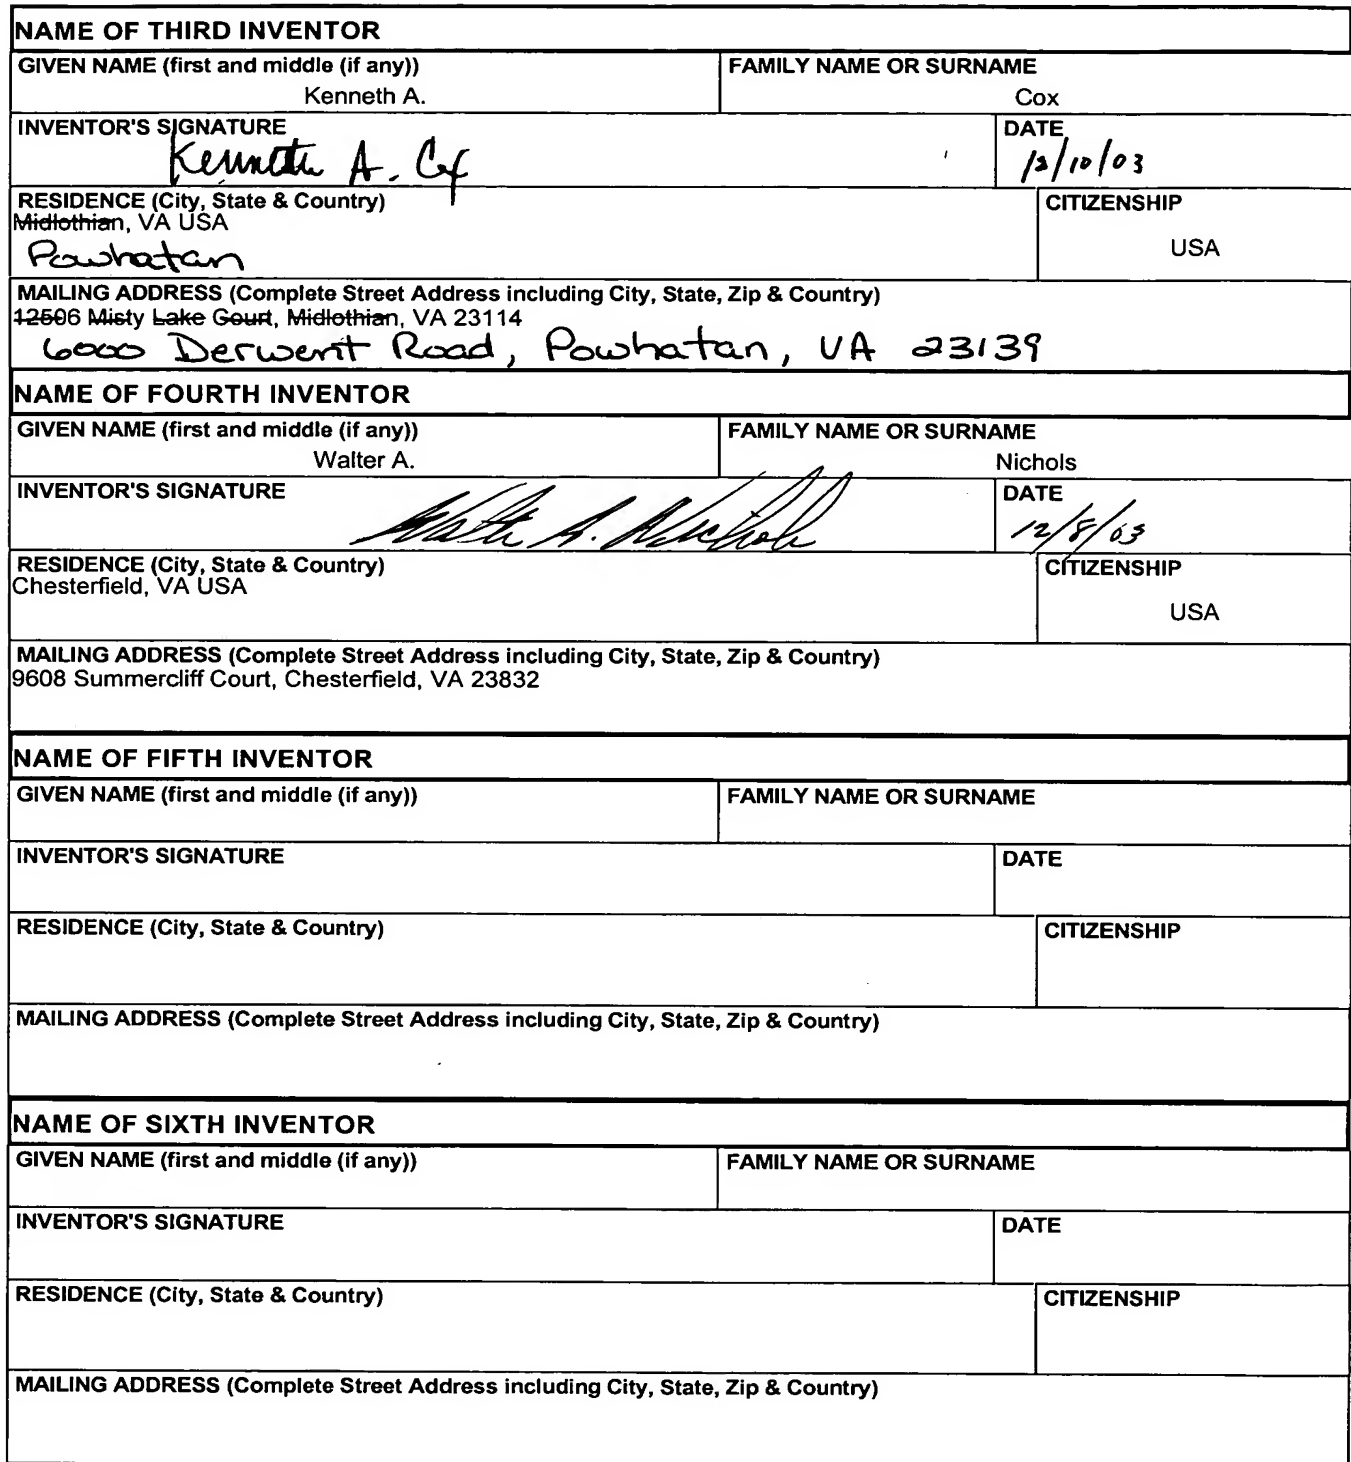 NAME OF THIRD INVENTOR
GIVEN NAME (first and middle (if any)) FAMILY NAME OR SURNAME
Kenneth A. Cox
INVENTOR'S SIGNATURE DATE
Kenneth A. Cox 12/10/03
RESIDENCE (City, State & Country) CITIZENSHIP
Midlothian, VA USA
USA
Powhatan
MAILING ADDRESS (Complete Street Address including City, State, Zip & Country)
12506 Misty Lake Court, Midlothian, VA 23114
6000 Derwent Road, Powhatan, VA 23139
NAME OF FOURTH INVENTOR
GIVEN NAME (first and middle (if any)) FAMILY NAME OR SURNAME
Walter A. Nichols
INVENTOR'S SIGNATURE DATE
Walter A. Nichols 12/8/03
RESIDENCE (City, State & Country) CITIZENSHIP
Chesterfield, VA USA
USA
MAILING ADDRESS (Complete Street Address including City, State, Zip & Country)
9608 Summercliff Court, Chesterfield, VA 23832
NAME OF FIFTH INVENTOR
GIVEN NAME (first and middle (if any)) FAMILY NAME OR SURNAME
INVENTOR'S SIGNATURE DATE
RESIDENCE (City, State & Country) CITIZENSHIP
MAILING ADDRESS (Complete Street Address including City, State, Zip & Country)
NAME OF SIXTH INVENTOR
GIVEN NAME (first and middle (if any)) FAMILY NAME OR SURNAME
INVENTOR'S SIGNATURE DATE
RESIDENCE (City, State & Country) CITIZENSHIP
MAILING ADDRESS (Complete Street Address including City, State, Zip & Country)